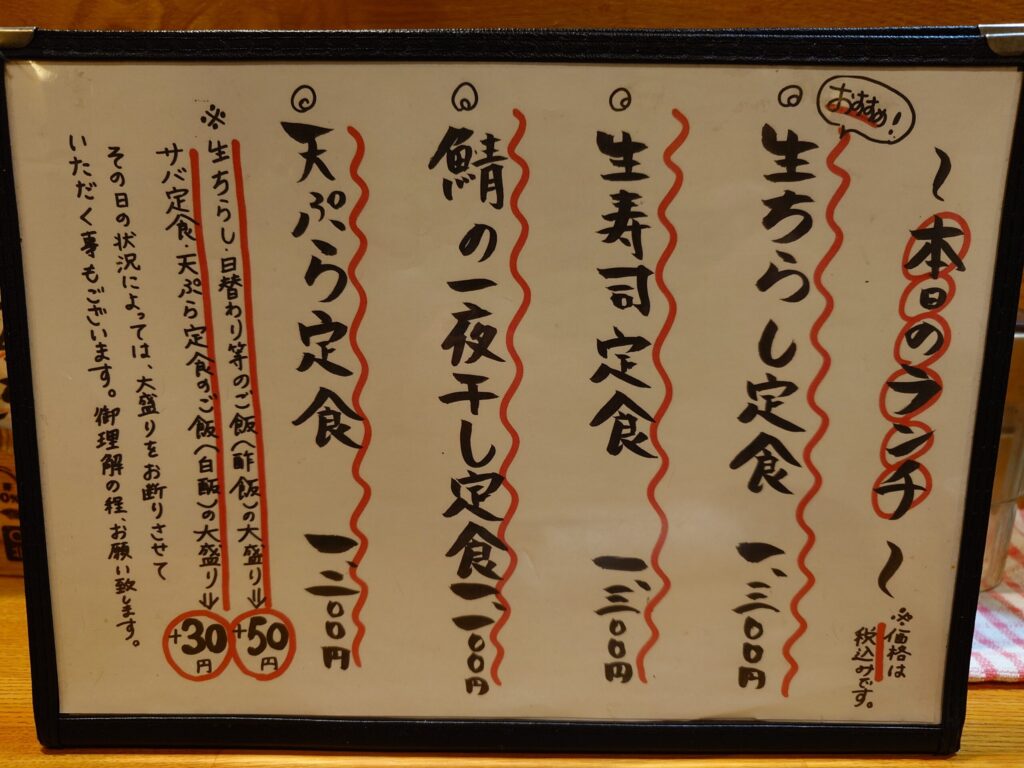 〜本日のランチ〜
※価格は
税込みです。
おすすめ!
生ちらし定食 一、三〇〇円
生寿司定食 一、三〇〇円
鯖の一夜干し定食 一、一〇〇円
天ぷら定食 一、二〇〇円
※生ちらし・日替わり等のご飯(酢飯)の大盛り⇒+50円
サバ定食・天ぷら定食のご飯(白飯)の大盛り⇒+30円
その日の状況によっては、大盛りをお断りさせて
いただく事もございます。御理解の程、お願い致します。